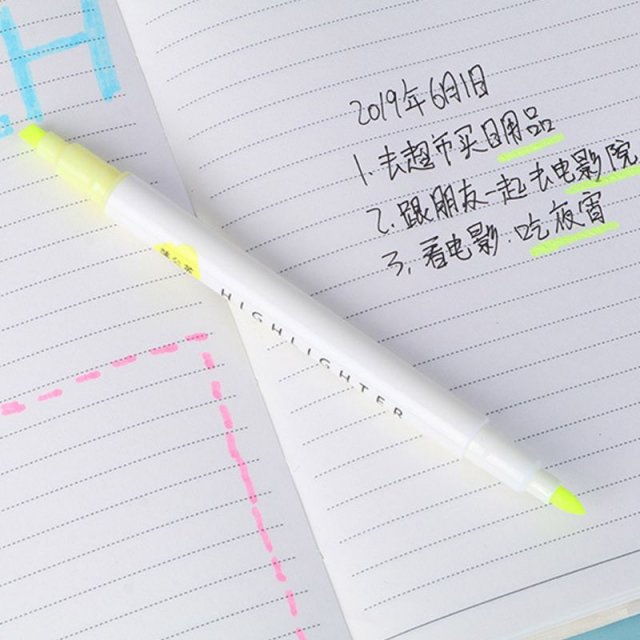 H
2019年6月1日
1.去超市买日用品
2.跟朋友一起去电影院
3.看电影.吃夜宵
蒲公英
HIGHLIGHTER